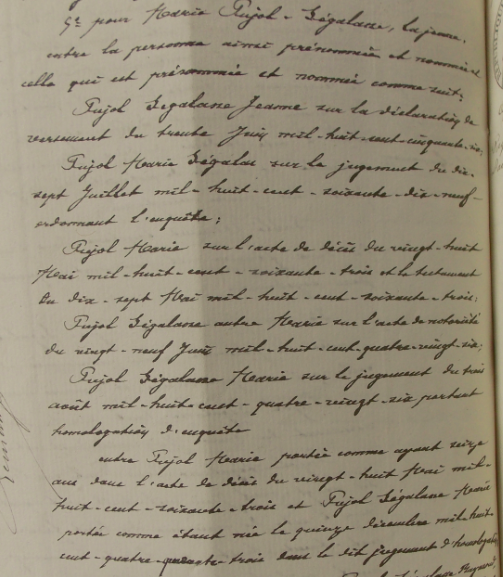 5º pour Maria Pujol-Ségalasse, la jeune,
entre la personne ainsi prénommée et nommée et
celle qui est prénommée et nommée comme suit:
Pujol Ségalasse Jeanne sur la déclaration de
versement du trente Juin mil-huit-cent-cinquante-six;
Pujol Maria Ségalas sur le jugement du dix-
sept Juillet mil-huit-cent-soixante-dix-neuf-
ordonnant l'enquête;
Pujol Maria sur l'acte de décès du vingt-huit
Mai mil-huit-cent-soixante-trois et le testament
du dix-sept Mai mil-huit-cent-soixante-trois;
Pujol Ségalasse autre Maria sur l'acte de notoriété
du vingt-neuf Juin mil-huit-cent-quatre-vingt-six;
Pujol Ségalasse Maria sur le jugement du trois
août mil-huit-cent-quatre-vingt-six portant
homologation d'enquête
entre Pujol Maria portée comme ayant seize
ans dans l'acte de décès du vingt-huit Mai mil-
huit-cent-soixante-trois et Pujol Ségalasse Maria
portée comme étant née le quinze décembre mil-huit-
cent-quatre-trois dans le dit jugement d'homologation